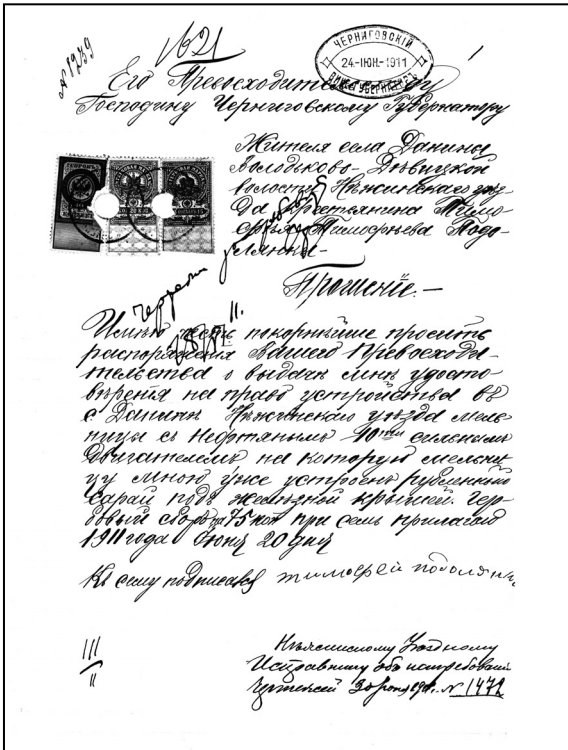 № 1239
1621
1
ЧЕРНИГОВСКІЙ
24-ІЮН.-1911
ВИЦЕ-ГУБЕРНАТОРЪ
Его Превосходительству
Господину Черниговскому Губернатору
Жителя села Данины
Володьково-Дѣвицкой
волости Нѣжинскаго уѣз-
да крестьянина Тимо-
фея Тимофѣева Подо-
лянки-
Прошеніе.-
Имѣю честь покорнѣйше просить
распоряженія Вашего Превосходи-
тельства о выдачѣ мнѣ удосто-
вѣренія на право устройства въ
с Данинѣ Нѣжинскаго уѣзда мель-
ницы съ нефтянымъ 10ти сильнымъ
двигателемъ на которую мельни-
цу мною уже устроенъ рубленный
сарай подъ желѣзной крышей. Гер-
бовый сборъ 75 коп при семъ прилагаю
1911 года Іюня 20 дня
Къ сему подписався тимофей подолянк
III
11
Нѣжинскому Уѣздному
Исправнику объ истребованіи
чертежей 30 іюня 1911. № 1472